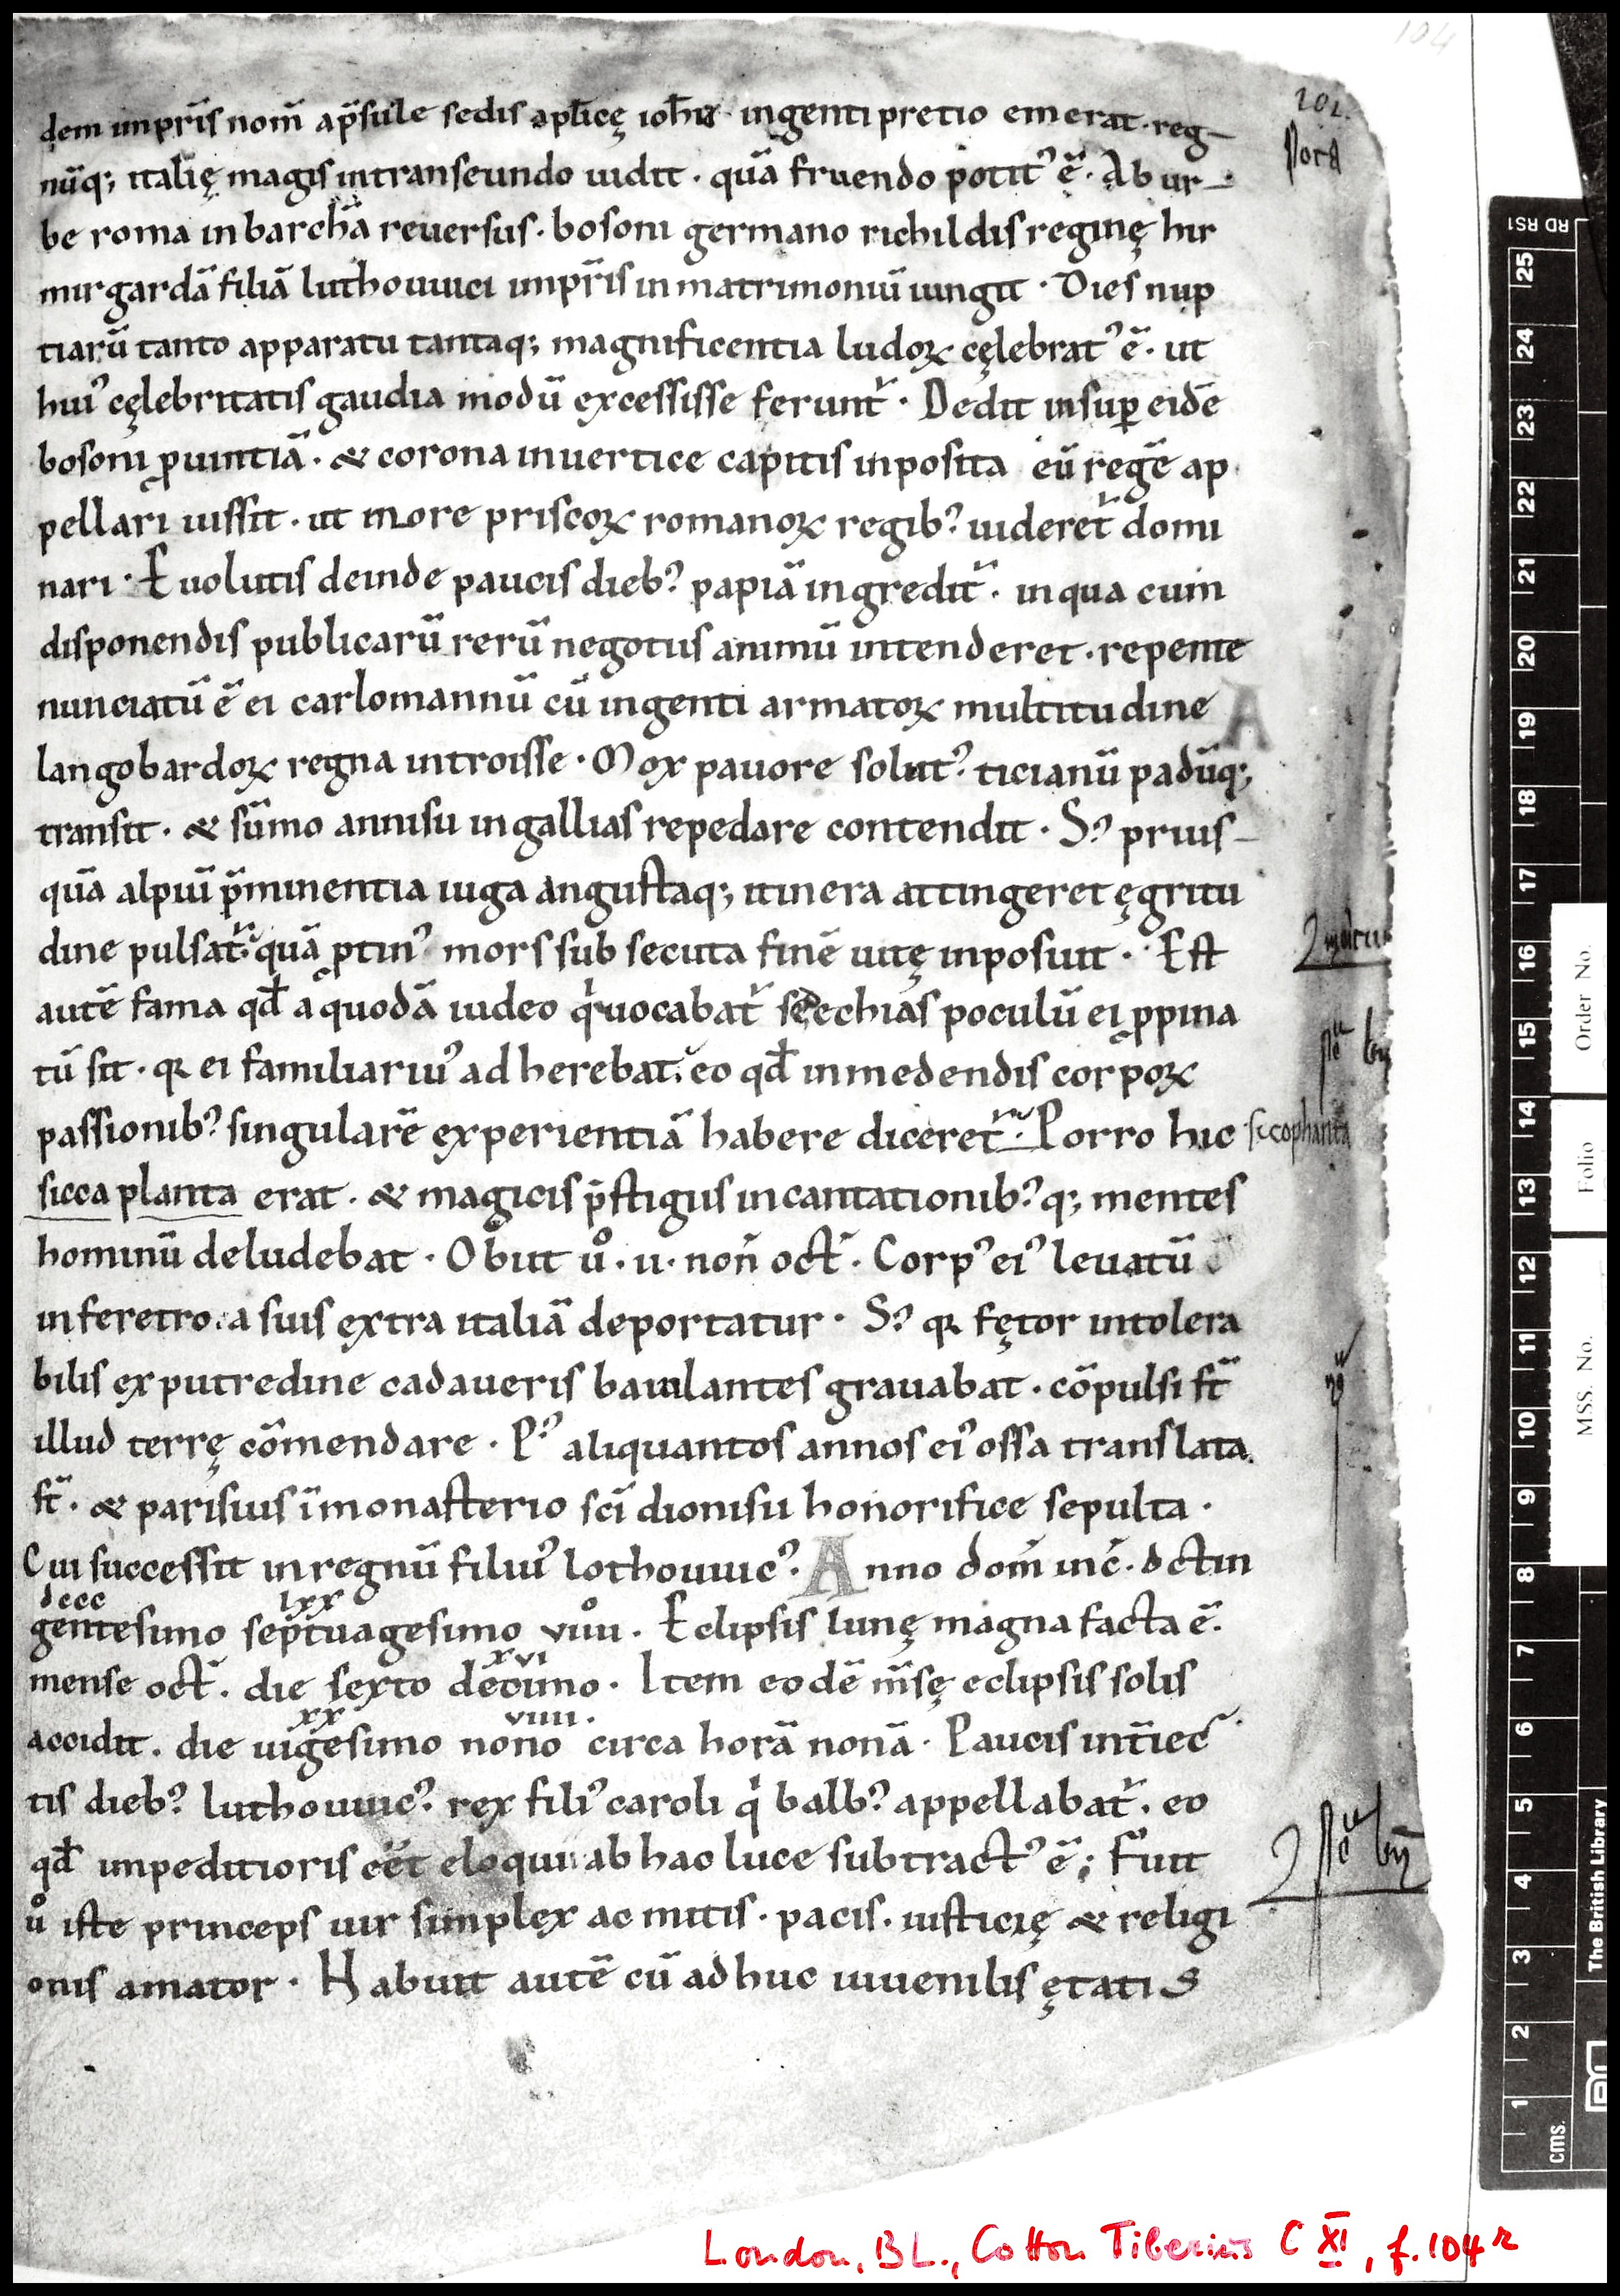 104
101.
dem imp̄ris nom̄ ap̄sule sedis aplicę ioh̄is · ingenti pretio emerat · reg-
nūq; italię magis in transeundo uidit · quā fruendo potit᾿ ē · Ab ur-
be roma in barchā reuersus · bosoni germano richildis reginę hir
mirgardā filiā luthouuici imp̄ris in matrimoniū iungit · Dies nup
tiarū tanto apparatu tantaq; magnificentia ludoꝝ cęlebrat᾿ ē · ut
hui᾿ cęlebritatis gaudia modū excessisse ferunt̄ · Dedit insuꝑ eidē
bosoni ꝓuintiā · & corona in uertice capitis inposita eū regē ap
pellari iussit · ut more priscoꝝ romanoꝝ regib᾿ uideret̄ domi
nari · Euolutis deinde paucis dieb᾿ papiā ingredit̄ · in qua cum
disponendis publicarū rerū negotiis animū intenderet · repente
nunciatū ē ei carlomannū cū ingenti armatoꝝ multitudine
A
langobardoꝝ regna introisse · Mox pauore solut᾿ ticianū padūq;
transit · & sūmo annisu in gallias repedare contendit · S᾿ prius-
quā alpiū p̄minentia iuga angustaq; itinera attingeret ęgritu
dine pulsat̄ · quā ꝓtin᾿ mors sub secuta finē uitę inposuit · Est
autē fama qđ a quodā iudeo qͥ uocabat̄ sedechias poculū ei ꝓpina
tū sit · qꝛ ei familiariu᾿ adherebat · eo qđ in medendis corpoꝝ
passionib᾿ singularē experientiā habere diceret̄ · Porro hic
sicophanta
sicca planta erat · & magicis p̄stigiis incantationib᾿q; mentes
hominū deludebat · Obiit uͦ · ii · non̄ oct̄ · Corp᾿ ei᾿ leuatū
in feretro · a suis extra italiā deportatur · S᾿ qꝛ fętor intolera
bilis ex putredine cadaueris baiulantes grauabat · cōpulsi st̄
illud terrę cōmendare · P᾿ aliquantos annos ei᾿ ossa translata
st̄ · & parisius ī monasterio sc̄i dionisii honorifice sepulta ·
Cui successit in regnū filiu᾿ lothouuic᾿ · Anno dom̄ inc̄ · octin
dccc lxx
gentesimo septuagesimo viiii · Eclipsis lunę magna facta ē ·
mense oct̄ · die sexto decimo · Item eodē m̄sę eclipsis solis
xvi
accidit · die uigesimo nono circa horā nonā · Paucis int̄iec
xx viiii ·
tis dieb᾿ luthouuic᾿ rex fili᾿ caroli qͥ balb᾿ appellabat̄ · eo
qđ impeditioris eēt eloquii ab hac luce subtract᾿ ē ; Fuit
uͦ iste princeps uir simplex ac mitis · pacis · iusticię & religi
onis amator · Habuit autē cū adhuc iuuenilis ętatis
London, BL, Cotton Tiberius C XI, f. 104r
RD RS1
25
24
23
22
21
20
19
18
17
16
15
14
13
12
11
10
9
8
7
6
5
4
3
2
1
cms.
Order No.
Folio
MSS. No.
The British Library